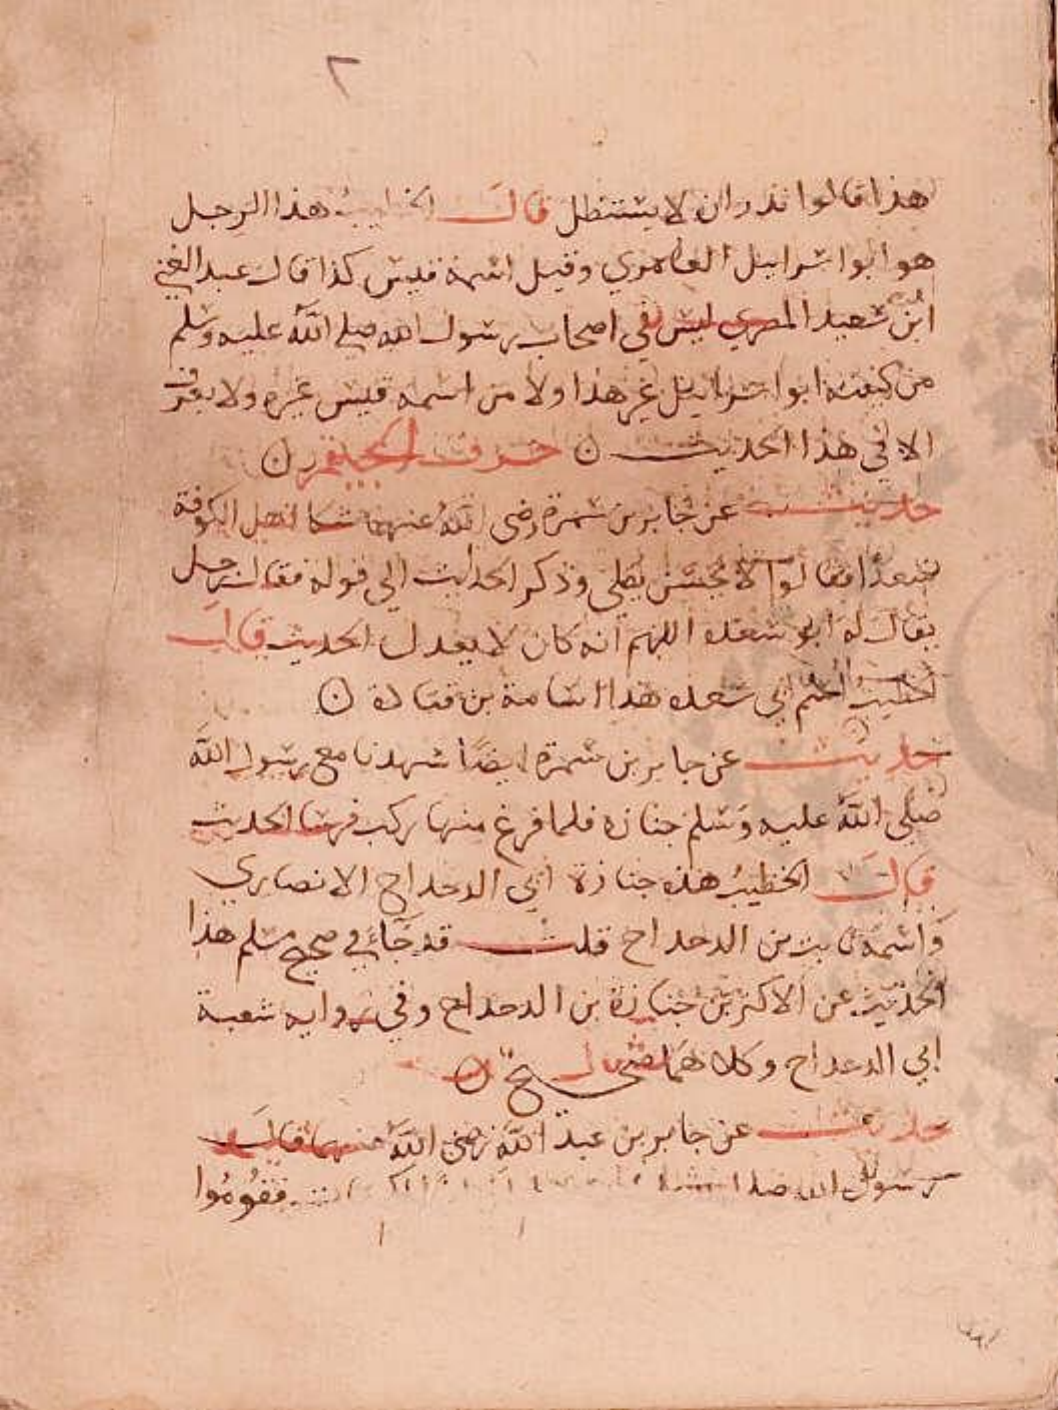 ٢
هذا قالوا نذر ان لا يستظل قال الخطيب هذا الرجل
هو ابو اسرايل العامري وقيل اسمه قيس كذا قال عبد الغني
ابن سعيد المصري ليس في اصحاب رسول الله صلى الله عليه وسلم
من كنيته ابو اسرايل غير هذا ولا من اسمه قيس غيره ولا يعرف
الا في هذا الحديث ن حرف الجيم ن
حديث عن جابر بن سمرة رضى الله عنهما شكا اهل الكوفة
سعدا فقالوا لا يحسن يصلي وذكر الحديث الى قوله فقال رجل
يقال له ابو سعده اللهم انه كان لا يعدل الحديث قال
الخطيب اسم ابي سعده هذا اسامة بن قتادة ن
حديث عن جابر بن سمرة ايضًا شهدنا مع رسول الله
صلى الله عليه وسلم جنازة فلما فرغ منها ركب فرسا الحديث
قال الخطيب هذه جنازة ابي الدحداح الانصاري
واسمه ثابت بن الدحداح قلت قد جاء في صحيح مسلم هذا
الحديث عن جنازة بن الدحداح وفي رواية شعبة
ابي الدحداح وكلاهما صحيح ن
حديث عن جابر بن عبد الله رضى الله عنهما قال
رسول الله فقوموا